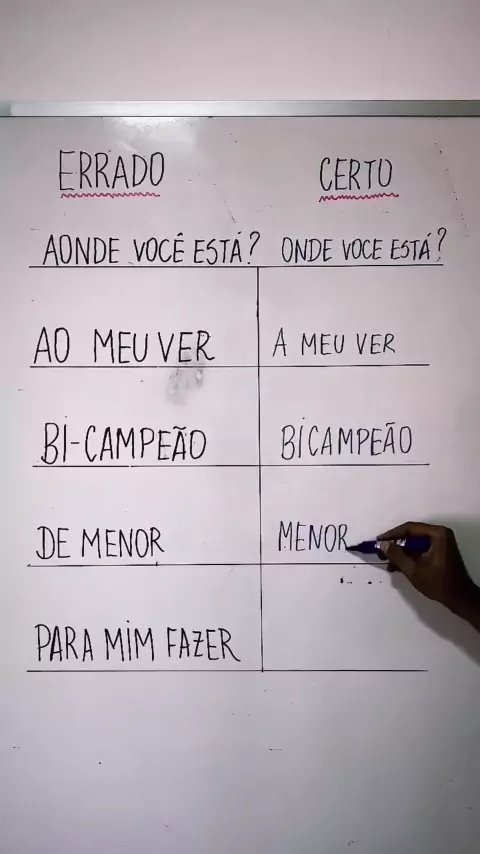 ERRADO CERTO
AONDE VOCÊ ESTÁ? ONDE VOCE ESTÁ?
AO MEU VER A MEU VER
BI-CAMPEÃO BICAMPEÃO
DE MENOR MENOR
PARA MIM FAZER